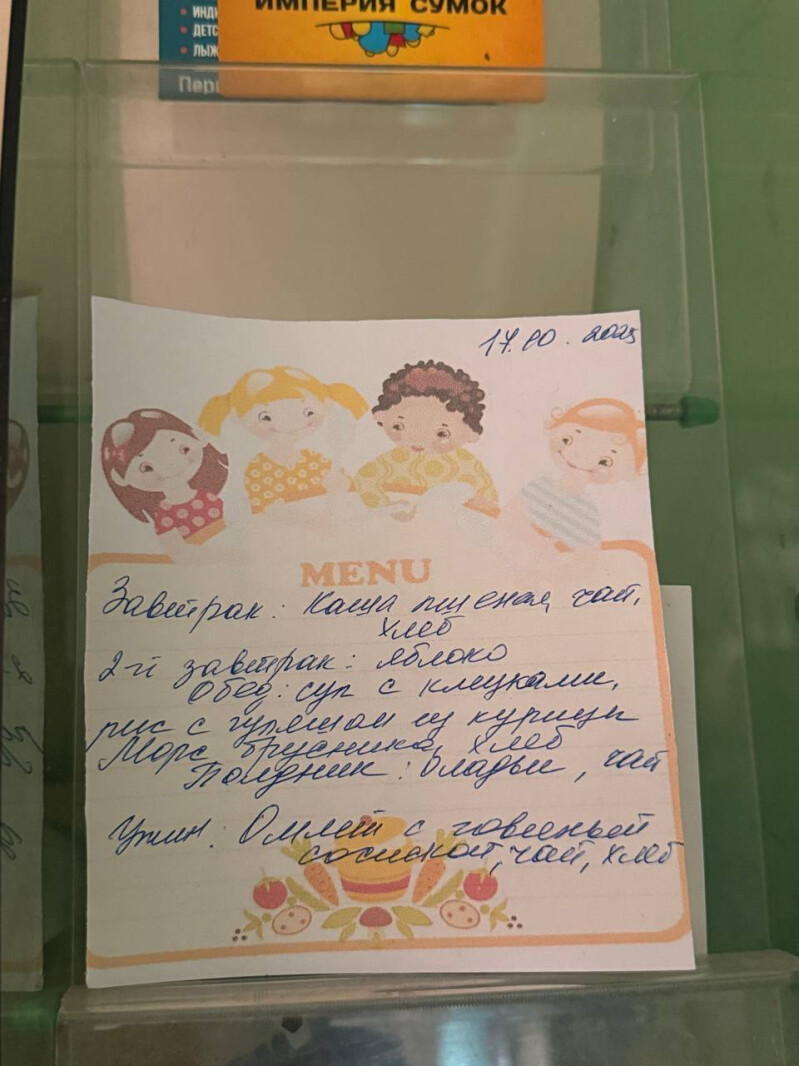 ИМПЕРИЯ СУМОК
• ДЕТС
• ЛЫЖ
17.10.2025
MENU
Завтрак: Каша пшеная, чай,
хлеб
2-й завтрак: яблоко
Обед: суп с клецками,
рис с гуляшом из курицы
Морс брусника, хлеб
Полдник: Оладьи, чай
Ужин: Омлет с говяжьей
сосиской, чай, хлеб